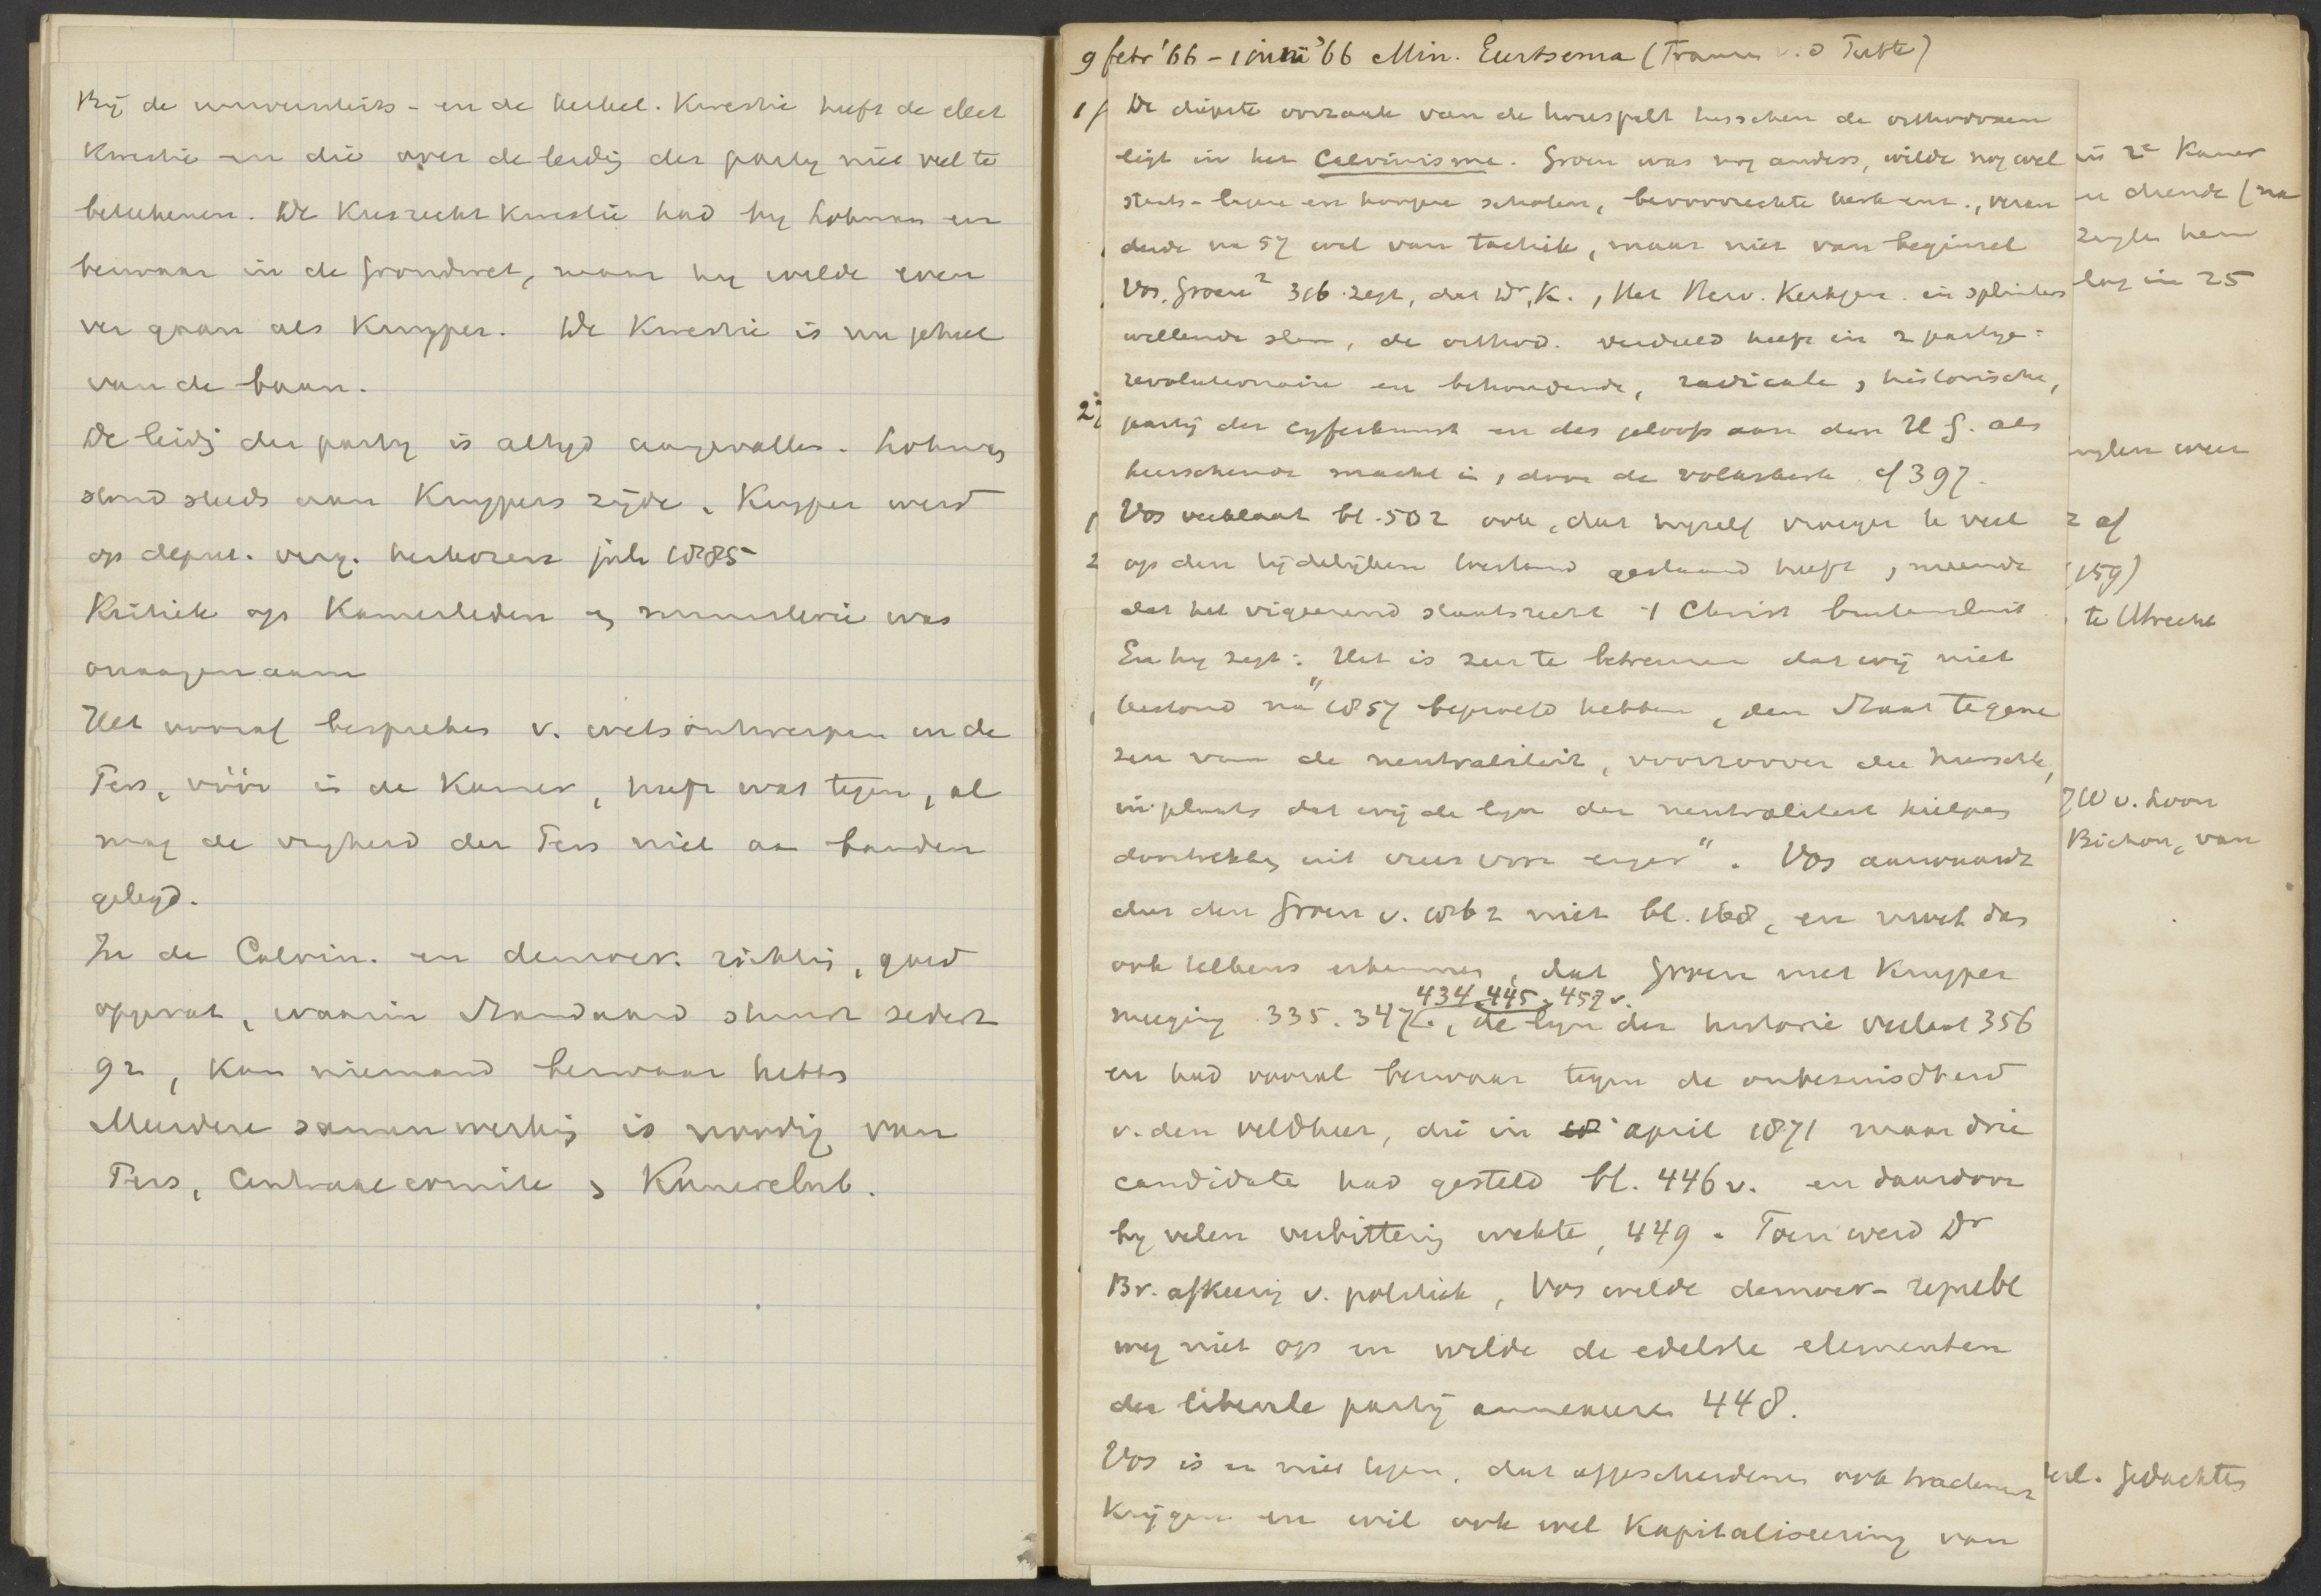 Bij de universiteits- en de herbel. Kwestie heeft de elect
Kwestie en die over de leidg der party niet veel te
beteekenen. De Kiesrecht Kwestie had by Lohman een
bezwaar in de grondwet, maar hy wilde even
ver gaan als Kuyper. De Kwestie is nu geheel
van de baan.
De leidg der party is altyd aangevallen. Lohman
stond steeds aan Kuypers zijde. Kuyper werd
op deput. verg. herkozen juli 1885
Kritiek op Kamerleden en ministerie was
onaangenaam
Het vooraf bespreken v. wetsontwerpen in de
Pers, vóór in de Kamer, heeft wat tegen, al
mag de vryheid der Pers niet aan banden
gelegd.
In de Calvin. en democr. richting, goed
opgevat, waarin Standaard stuurt sedert
92, kan niemand bezwaar hebben
Meerdere samenwerking is noodig van
Pers, Centraal comite en Kamerclub.
9 febr '66 - 1 juni '66 Min. Eerstsema (Frans v. d Putte)
1/ De diepste oorzaak van de tweespalt tusschen de orthodoxen
ligt in het Calvinisme. Groen was nog anders, wilde nog wel
staats-lagere en hoogere scholen, bevoorrechte kerk enz., veran
derde na 57 wel van tactiek, maar niet van beginsel
Vos, Groen² 316 zegt, dat Dr. K., Het Herv. Kerkgen. in splinters
willende slaan, de orthod. verdeeld heeft in 2 partyen:
revolutionaire en behoudende, radicale, historische,
2/ partij der cyferkunst en des geloofs aan den H G. als
heerschende macht in, door de volkskerk cf 397.
1 Vos verklaart bl. 502 ook, dat hyzelf vroeger te veel
2 op den tijdelijken toestand gestaard heeft, meende
dat het vigeerend staatsrecht 't Christ buitensluit
En hy zegt: "Het is zeer te betreuren dat wij niet
terstond na 1857 beproefd hebben, den Staat te gene
zen van de neutraliteit, voorzoover die heerschte,
in plaats dat wij de lyn der neutraliteit hielpen
doortrekken uit vrees voor erger". Vos aanvaardt
dus den Groen v. 1862 niet bl. 168, en moet dan
ook telkens erkennen, dat Groen met Kuyper
434 445. 457 v.
meeging 335. 347, de lyn der historie verlaat 356
en had vooral bezwaar tegen de onbesuisdheid
v. den veldheer, die in april 1871 maar drie
candidate had gesteld bl. 446 v. en daardoor
by velen verbittering wekte, 449. Toen werd Dr
Br. afkeerig v. politiek, Vos wilde democr-republ
weg niet op en wilde de edelste elementen
der liberale partij annexeeren 448.
Vos is er niet tegen, dat afgescheidenen ook tractement
krijgen en wil ook wel Kapitaliseering van
in 2e Kamer
en diende (na
hem
lag in 25
weer
2 af
159)
te Utrecht
JW v. Loon
Bichon, van
gedachten